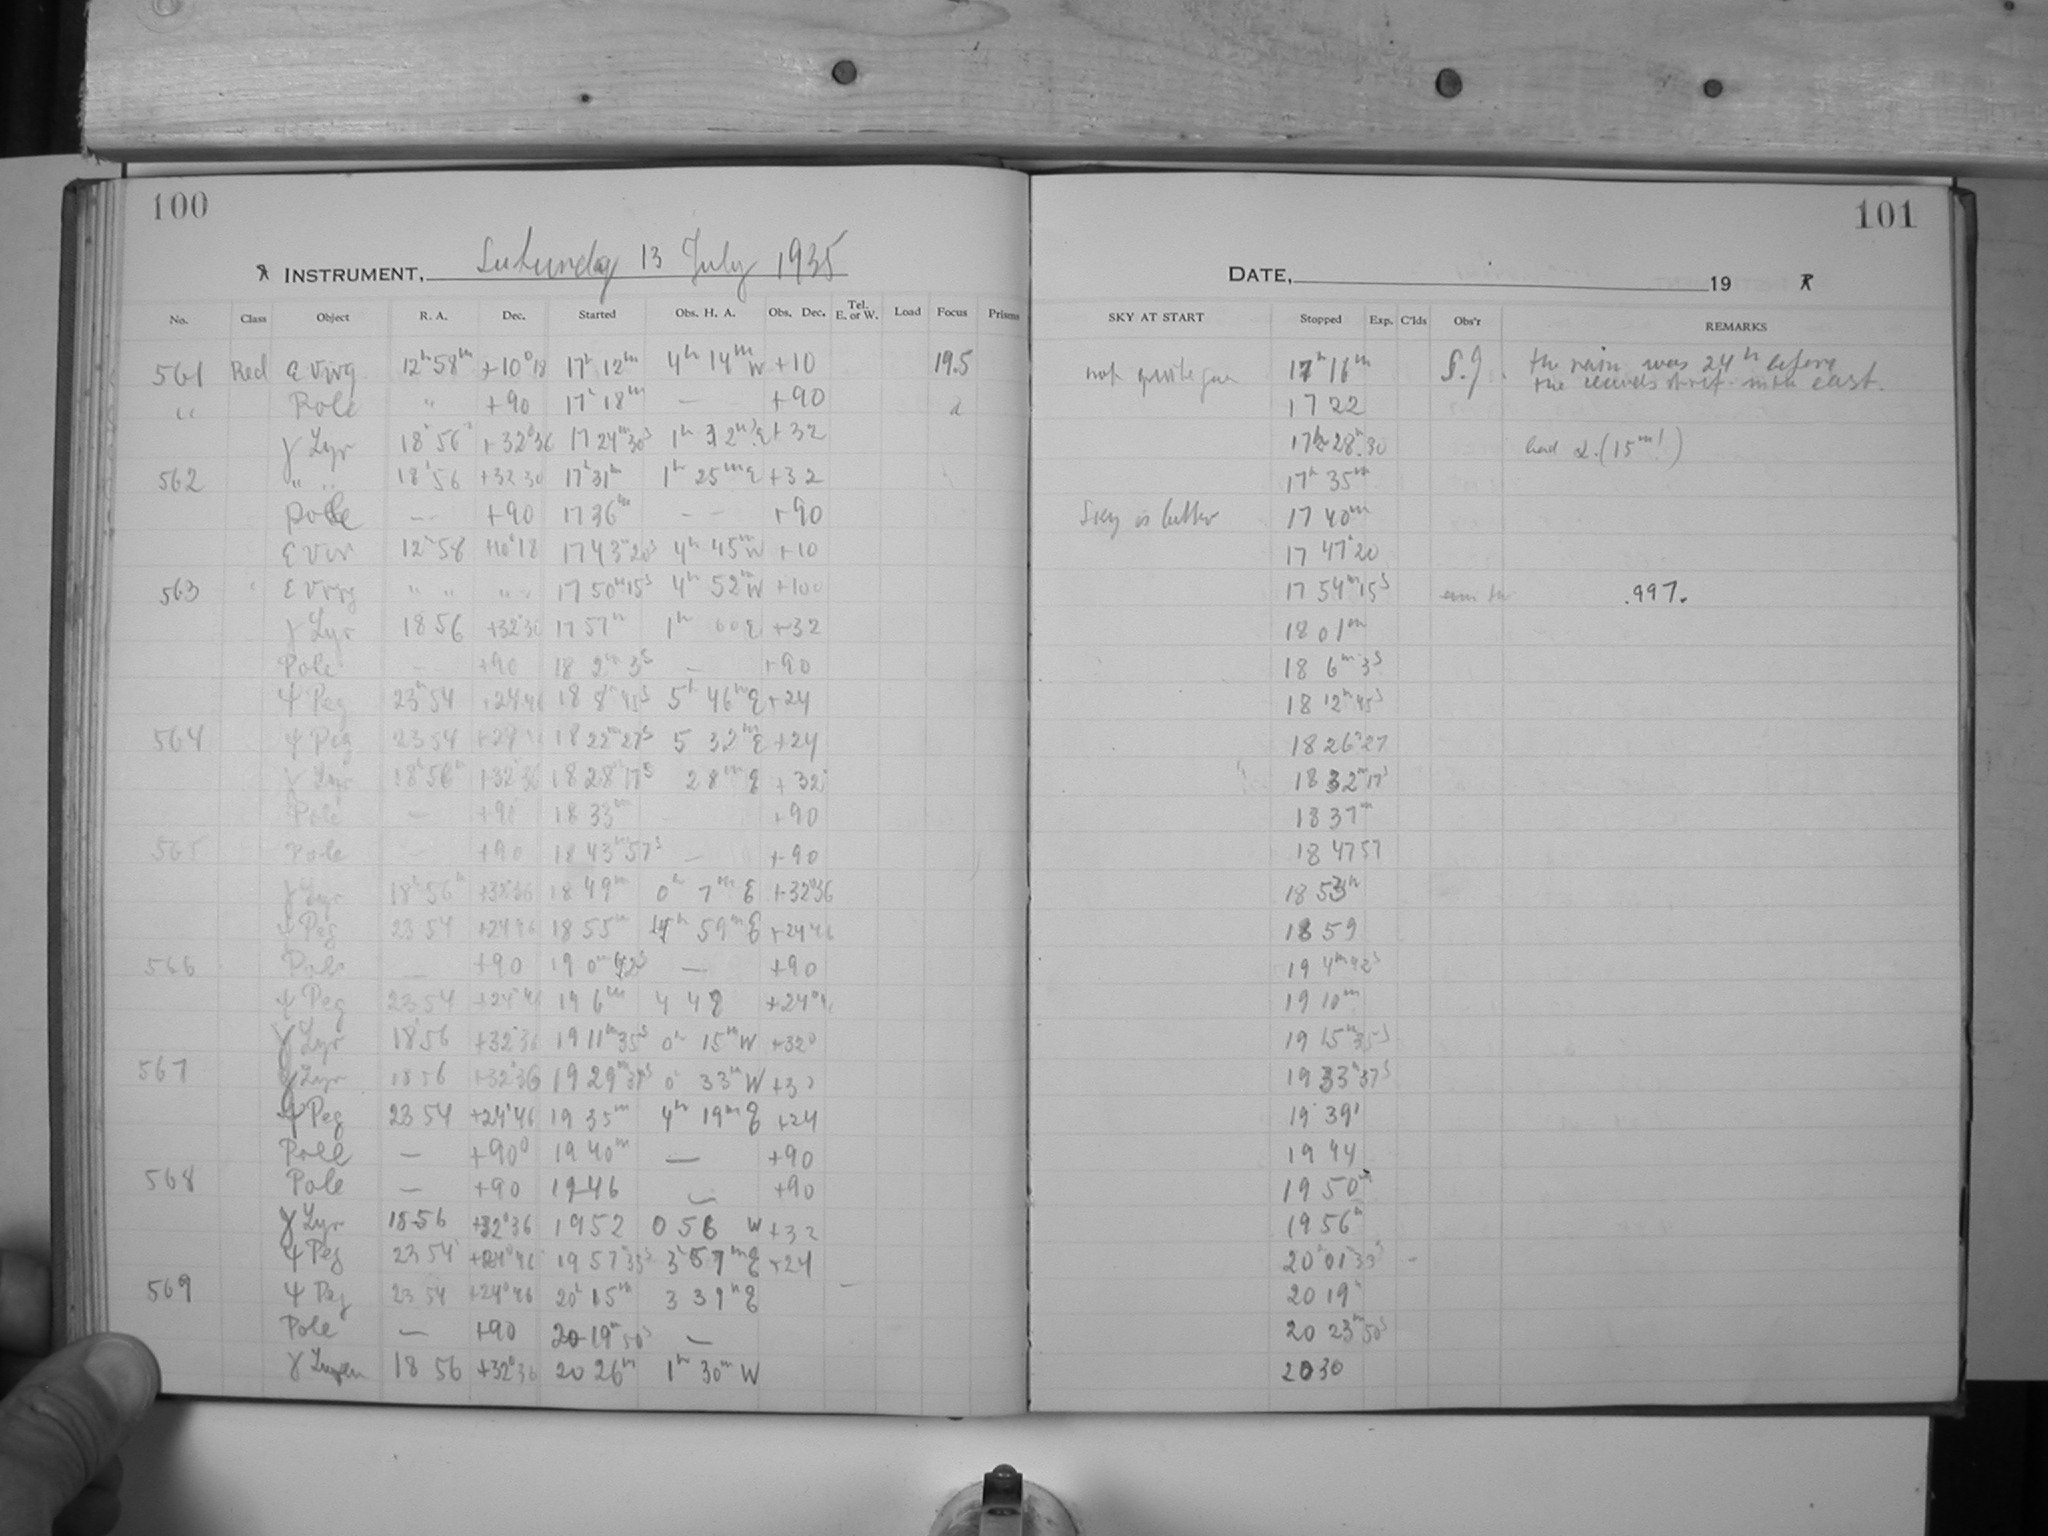 100
INSTRUMENT, Saturday 13 July 1935
No. Class Object R. A. Dec. Started Obs. H. A. Obs. Dec. Tel. E. or W. Load Focus Prisms
561 Red ε Virg 12h 58m +10°18 17h 12m 4h 14m W +10 19.5
" Pole " +90 17h 18m — +90
γ Lyr 18h 56 +32°36 17 24m 30s 1h 32m E +32
562 " " 18h 56 +32 36 17h 31m 1h 25m E +32
Pole — +90 17 36m - - +90
ε Vir 12h 58 +10°18 17 43m 20s 4h 45m W +10
563 ε Virg " " " " 17 50m 15s 4h 52m W +10
γ Lyr 18 56 +32°36 17 57m 1h 00 E +32
Pole — +90 18 2m 3s — +90
ψ Peg 23h 54 +24 46 18 8m 45s 5h 46m E +24
564 ψ Peg 23 54 +24 18 22m 27s 5 32m E +24
γ Lyr 18h 56m +32°36 18 28m 17s 28m E +32
Pole — +90 18 33m +90
565 Pole — +90 18 43m 57s — +90
γ Lyr 18h 56m +32°36 18 49m 0h 7m E +32°36
ψ Peg 23 54 +24 46 18 55m 4h 59m E +24 46
566 Pole — +90 19 0m 42s — +90
ψ Peg 23 54 +24°46 19 6m 4 48 +24°
γ Lyr 18h 56 +32°36 19 11m 35s 0h 15m W +32°
567 γ Lyr 18 56 +32°36 19 29m 37s 0h 33m W +32
ψ Peg 23 54 +24°46 19 35m 4h 19m E +24
Pole — +90° 19 40m — +90
568 Pole — +90 19 46 — +90
γ Lyr 18 56 +32°36 19 52 0 56 W +32
ψ Peg 23 54 +24°46 19 57m 33s 3h 57m E +24
569 ψ Peg 23 54 +24°46 20h 15m 3 39m E
Pole — +90 20 19m 50s —
γ 18 56 +32°36 20 26m 1h 30m W
101
DATE, 19
SKY AT START Stopped Exp. C'lds Obs'r REMARKS
not quite 17h 16m S.J. the rain was 24h before
the east.
17 22
17h 28m 30 had 2. (15m!)
17h 35m
Sky is better 17 40m
17 47m 20
17 54m 15s .997.
18 01m
18 6m 3s
18 12m 45s
18 26m 27
18 32m 17s
18 37m
18 47 57
18 53m
18 59
19 4m 42s
19 10m
19 15m 35s
19 33m 37s
19 39
19 44
19 50m
19 56m
20h 01m 33s
20 19
20 23m 50s
20 30